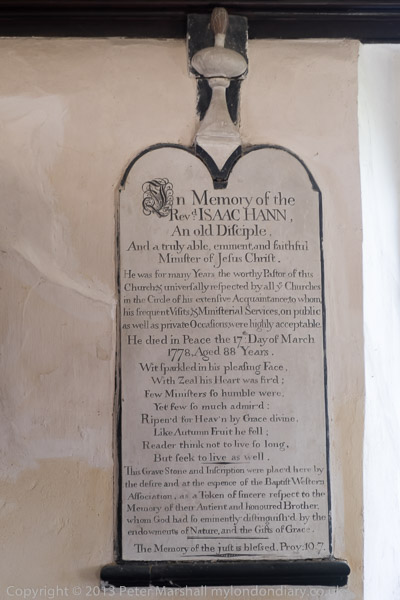 In Memory of the
Rev.d ISAAC HANN,
An old Disciple,
And a truly able, eminent and faithful
Minister of Jesus Christ.
He was for many Years the worthy Pastor of this
Church, & universally respected by all ye Churches
in the Circle of his extensive Acquaintance; to whom
his frequent Visits, & Ministerial Services, on public
as well as private Occasions were highly acceptable.
He died in Peace the 17th Day of March
1778, Aged 88 Years.
Wit sparkled in his pleasing Face,
With Zeal his Heart was fir'd;
Few Ministers so humble were,
Yet few so much admir'd:
Ripen'd for Heav'n by Grace divine,
Like Autumn Fruit he fell;
Reader think not to live so long,
But seek to live as well.
This Grave Stone and Inscription were plac'd here by
the desire and at the expence of the Baptist Western
Association, as a Token of sincere respect to the
Memory of their Antient and honoured Brother,
whom God had so eminently distinguish'd by the
endowments of Nature, and the Gifts of Grace.
The Memory of the just is blessed. Prov: 10.7.
Copyright © 2013 Peter Marshall mylondondiary.co.uk